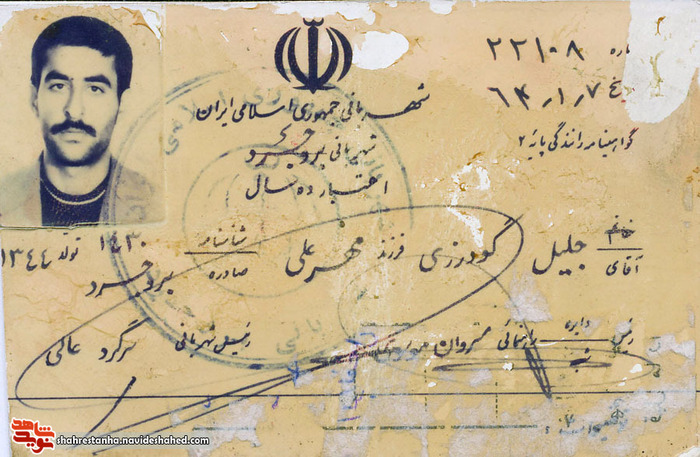 شماره ۲۲۱۰۸
تاریخ ۶۴/۱/۷
شهربانی جمهوری اسلامی ایران
گواهینامه رانندگی پایه ۲
شهربانی بروجرد
اعتبار ده سال
خانم
آقای جلیل گودرزی فرزند مهرعلی شناسنامه ۱۴۳۰ تولد ۱۳۴۴
صادره بروجرد
رئیس دایره راهنمائی رئیس شهربانی سرگرد عالی
شاهد نوید
shahrestanha.navideshahed.com